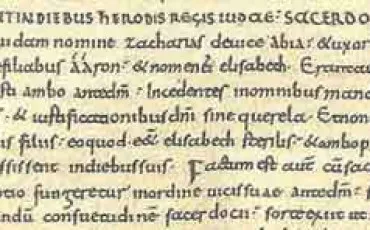 IT IN DIEBUS HERODIS REGIS IUDAE· SACERDO
uidam nomine zacharias deuice abia· & uxor
efiliabus ááron· & nomen eí elisabeth· Erant au
sti ambo antedm̄· Incedentes inomnibus man
· & iustificationibus dnī sine querela· & non
is filius· eoquod eēt elisabeth sterilis· & ambop
ssissent indiebus suis· Factum est autē cū sac
otio fungeretur inordine uicissuae antedm̄· s
ndū consuetudinē sacerdotii· sorte exiit ut